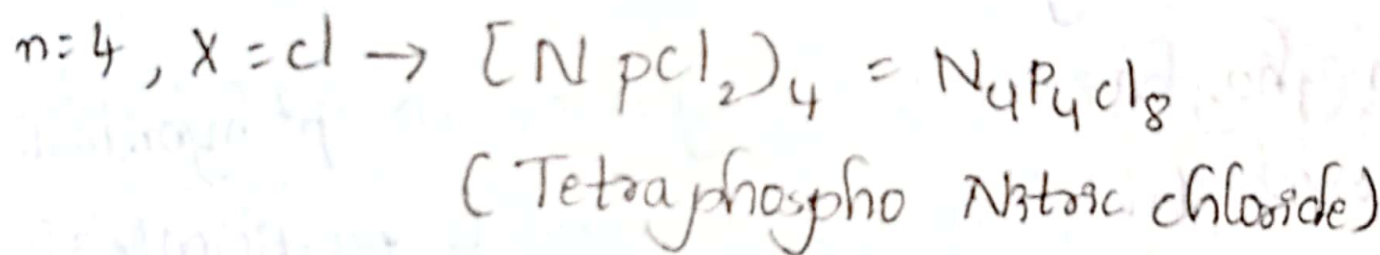 n=4, X=cl → [NpCl₂)₄ = N₄P₄cl₈
(Tetraphospho Nitric chloride)